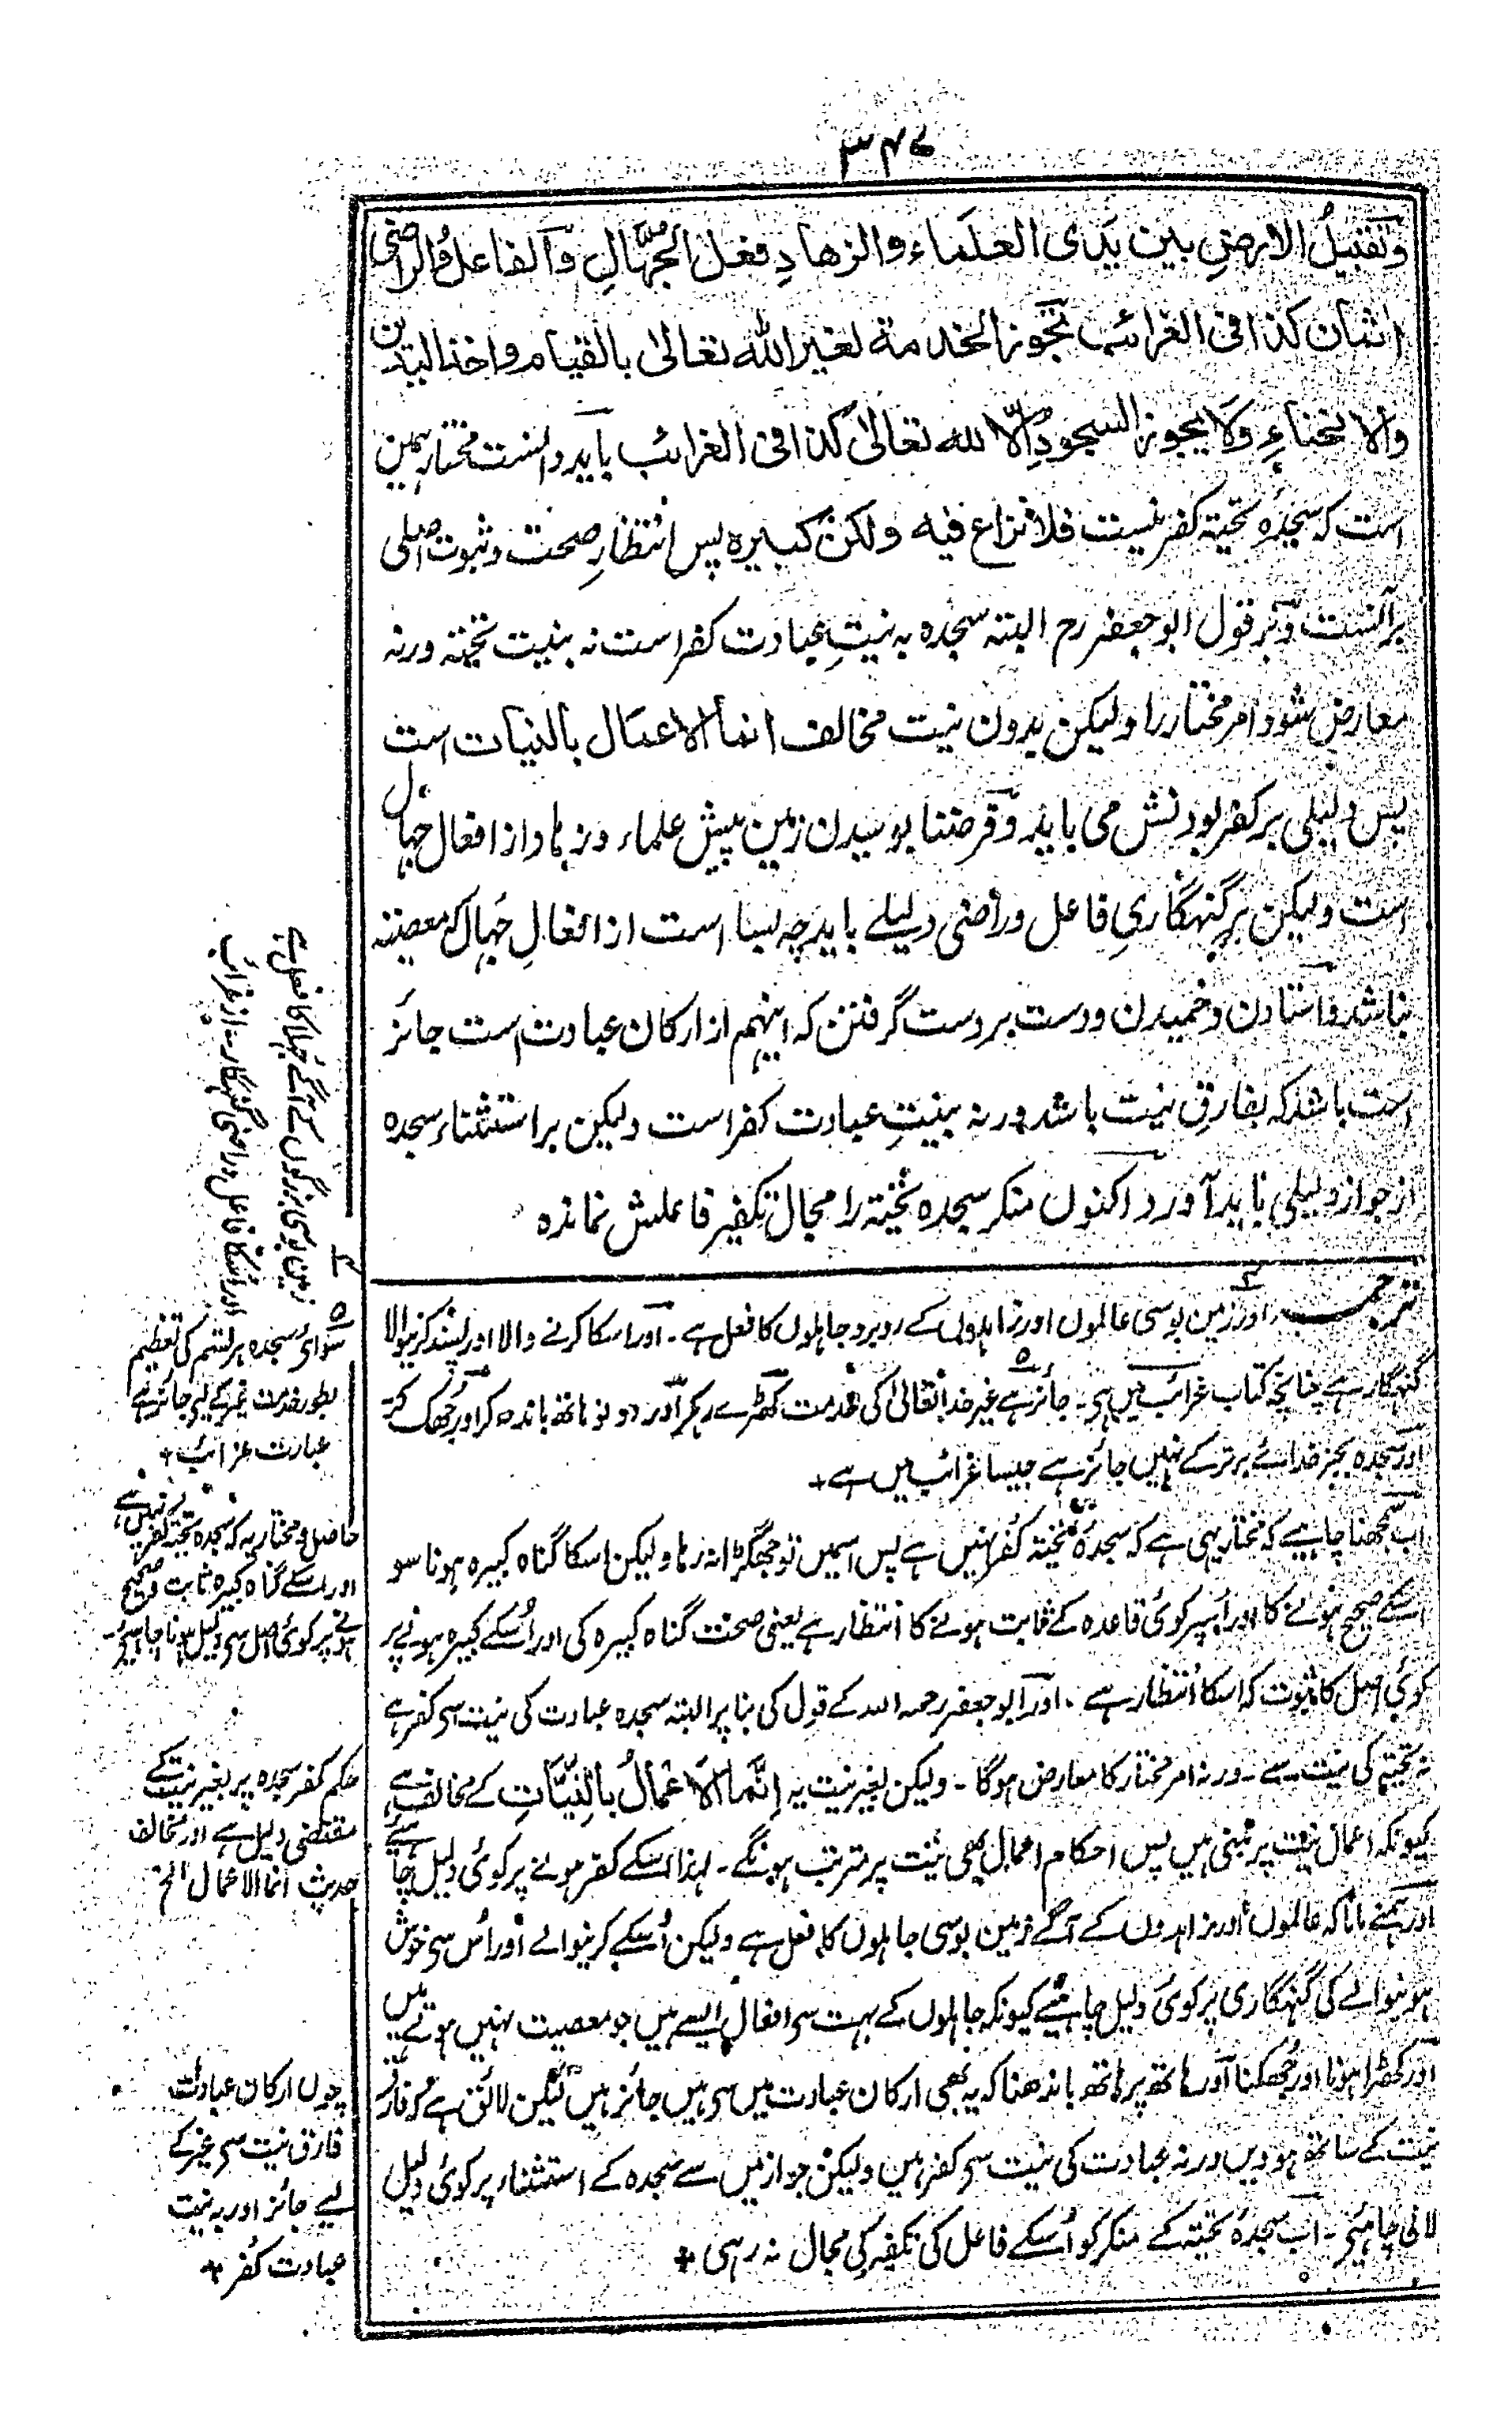 ۳۴۷
وتقبیلُ الارضِ بین یدی العلماء والزهادِ فعل الجُهّالِ والفاعل والراضی
اٰثمان کذا فی الغرائب تجوز الخدمة لغیر الله تعالیٰ بالقیام واخذ الیدین
والانحناءِ ولا یجوز السجودُ اِلّا لله تعالیٰ کذا فی الغرائب باید دانست مختار ہمین
است کہ سجدهٔ تحیّة کفر نیست فلا نزاع فیه ولکن کبیرہ پس انتظارِ صحت وثبوت اصلی
برآنست وبر قول ابو جعفر رح البتہ سجدہ بہ نیتِ عبادت کفر است نہ بنیت تحیّة ورنہ
معارض شود امر مختار را ولیکن بدون نیت مخالف انما الاعمال بالنیات است
پس دلیلی بر کفر بودنش می باید وفرضنا بوسیدن زمین پیش علماء وزہاد از افعال جہال
است ولیکن بر گنہگاریِ فاعل وراضی دلیلے باید چہ بسا است از افعالِ جُہال کہ معصیتہ
نباشد واستادن وخمیدن ودست بر دست گرفتن کہ اینہم از ارکان عبادت است جائز
است باشد کہ بفارقِ نیت باشد ورنہ بنیتِ عبادت کفر است ولیکن بر استثناء سجدہ
از جواز دلیلی باید آورد اکنون منکر سجدہ تحیّة را مجال تکفیر فاعلش نماندہ
ترجمہ اور زمین بوسی عالموں اور زاہدوں کے روبرو جاہلوں کا فعل ہے ۔ اور اسکا کرنے والا اور پسند کرنیوالا
گنہگار ہے چنانچہ کتاب غرائب میں ہی ۔ جائز ہے غیر خدا تعالیٰ کی خدمت کھڑے رہکر اور دونو ہاتھ باندھ کر اور جُھک کر
اور سجدہ بجز خدائے برتر کے نہیں جائز ہے جیسا غرائب میں ہے +
اب سمجھنا چاہیے کہ مختار یہی ہے کہ سجدۂ تحیّتہ کُفر نہیں ہے پس اسمیں تو جھگڑا نہ رہا ولیکن اسکا گناہ کبیرہ ہونا سو
اسکے صحیح ہونے کا اور اُسپر کوئی قاعدہ کے ثابت ہونے کا انتظار ہے یعنی صحت گناہ کبیرہ کی اور اُسکے کبیرہ ہونے پر
کوئی اصل کا ثبوت کہ اسکا انتظار ہے ۔ اور ابو جعفر رحمہ اللہ کے قول کی بنا پر البتہ سجدہ عبادت کی نیت سی کفر ہے
نہ تحیّتہ کی نیت سے ۔ ورنہ امر مختار کا معارض ہوگا ۔ ولیکن بغیر نیت یہ اِنَّمَا الْاَعْمَالُ بِالنِّیَّاتِ کے مخالف ہے
کیونکہ اعمال نیت پر مبنی ہیں پس احکام اعمال بھی نیت پر مترتب ہونگے ۔ لہذا اسکے کفر ہونے پر کوئی دلیل چاہئے
اور ہمنے مانا کہ عالموں اور زاہدوں کے آگے زمین بوسی جاہلوں کا فعل ہے ولیکن اُسکے کرنیوالے اور اُس سی خوش
ہونیوالے کی گنہگاری پر کوئی دلیل چاہئیے کیونکہ جاہلوں کے بہت سی افعال ایسے ہیں جو معصیت نہیں ہوتے ہیں
اور کھڑا ہونا اور جُھکنا اور ہاتھ پر ہاتھ باندھنا کہ یہ بھی ارکان عبادت میں سی ہیں جائز ہیں لیکن لائق ہے کہ فارق
نیت کے ساتھ ہوویں ورنہ عبادت کی نیت سی کفر ہیں ولیکن جواز میں سے سجدہ کے استثناء پر کوئی دلیل
لانی چاہئیے ۔ اب سجدۂ تحیّتہ کے منکر کو اُسکے فاعل کی تکفیر کی مجال نہ رہی +
زمین بوسی بزرگوں کے آگے جُہلا کا فعل ہے
اور اُسکا فاعل وراضی گنہگار ۔ از غرائب
سوائے سجدہ ہر قسم کی تعظیم
بطور خدمت غیر کے لیے جائز ہے
عبارت غرائب +
حاصل ومختار یہ کہ سجدہ تحیّتہ کفر نہیں ہے
اور اسکے گناہ کبیرہ ثابت وصحیح
ہونے پر کوئی اصل سی دلیل ہونا چاہئیے ۔
حکم کفر سجدہ پر بغیر نیت کے
مقتضی دلیل ہے اور مخالف
حدیث انما الاعمال الخ
چوں ارکان عبادت
فارق نیت سی غیر کے
لیے جائز اور بہ نیت
عبادت کُفر +